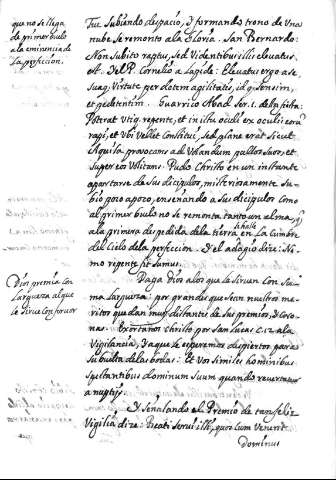 que no se llega
de primer bulo
a la eminencia de
la perfeccion.
fue Subiendo despacio, y formando trono de Una
nube se remonto a la Gloria. San Bernardo:
Non Subito raptus, sed Videntibus illis eleuatus,
est. Del P. Cornelio a Lapide: Eleuatus ergo a se
suaq, Virtute per dotem agilitatis, idq sensim,
et pedetentim. Guarrico Abad ser. 1. de
Poterat Utiq repente, et in ictu oculi ex oculis
rapi, et Ubi Vellet Constitui, Sed plane erat sicut
Aquila provocans ad Volandum pullos suos, et
super eos Volitans. Pudo Christo en un instante
apartarse de sus dicipulos, misteriosamente Su-
bio poco a poco, enseñando a sus dicipulos como
al primer bulo no se remonta tanto un alma, y
a la primera despedida dela tierra se halle en la Cumbre
del Cielo dela perfeccion. Y el adagio dize: Ne-
mo repente fit sumus.
Dios premia con
Largueza al que
le sirue con feruor
Paga Dios alos que le siruen Con Su-
ma Largueza: por grandes que sean nuestros me-
ritos quedan muy distantes de sus premios, y Coro-
nas. Exortanos christo por San Lucas C. 12. a la
Vigilancia, y a que le esperemos despiertos para
su buelta delas bodas: Et Vos similes hominibus
expectantibus dominum suum quando reuertatur
a nuptijs.
Y Señalando el Premio de tan feliz
Vigilia dize: Beati serui illi, quos cum Venerit
Dominus